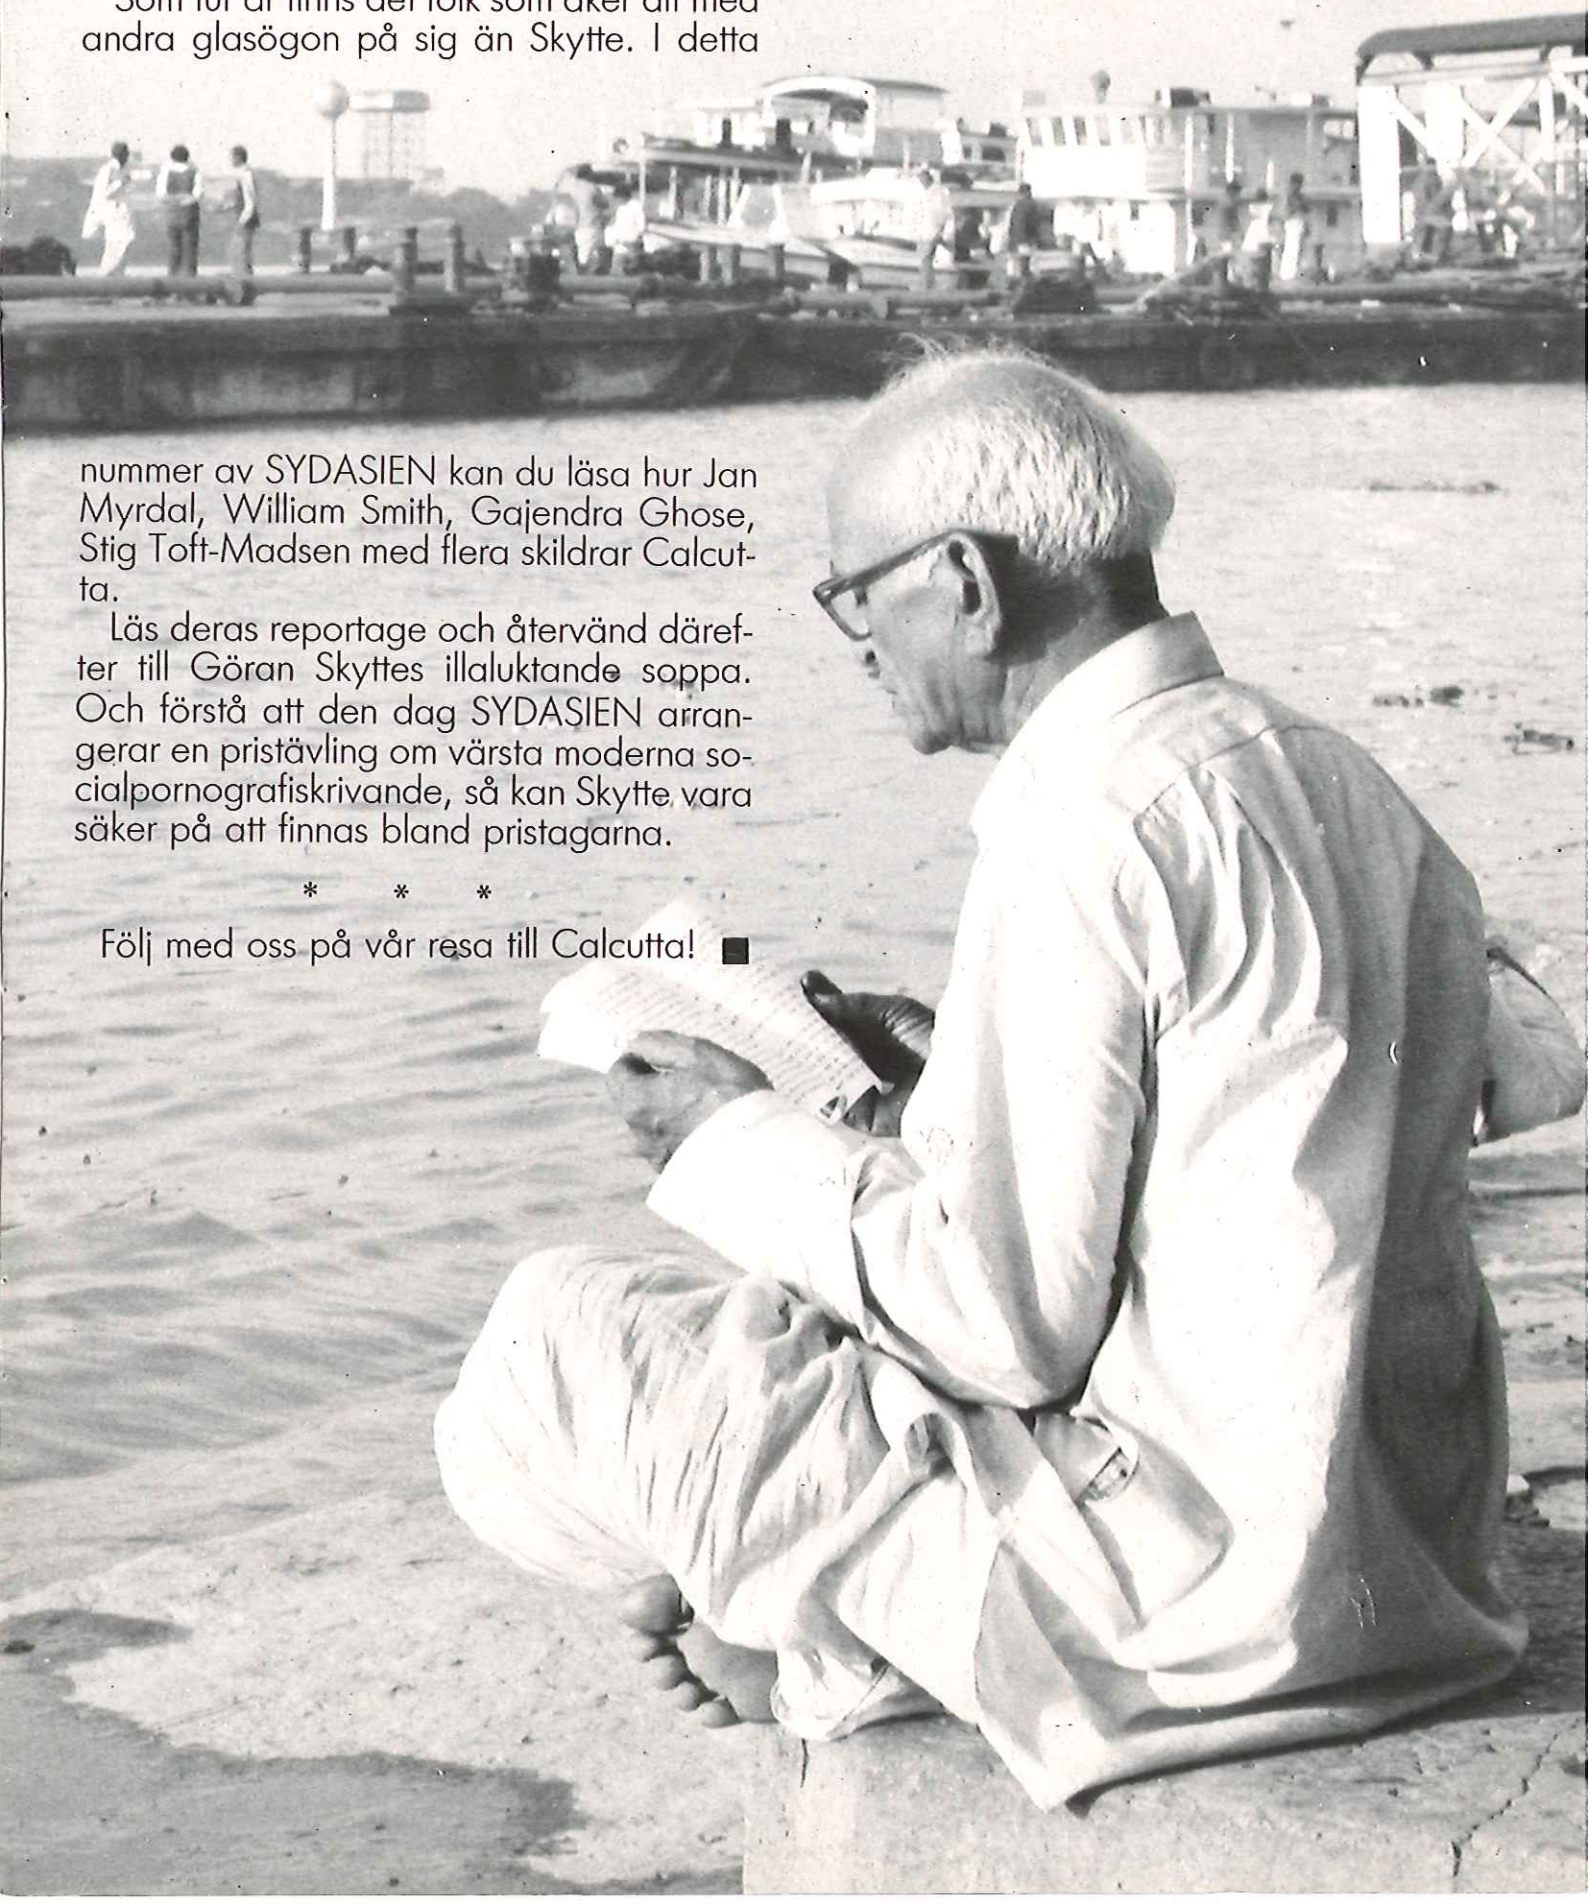 Som tur är finns det folk som åker dit med
andra glasögon på sig än Skytte. I detta
nummer av SYDASIEN kan du läsa hur Jan
Myrdal, William Smith, Gajendra Ghose,
Stig Toft-Madsen med flera skildrar Calcut-
ta.
Läs deras reportage och återvänd däref-
ter till Göran Skyttes illaluktande soppa.
Och förstå att den dag SYDASIEN arran-
gerar en pristävling om värsta moderna so-
cialpornografiskrivande, så kan Skytte vara
säker på att finnas bland pristagarna.
* * *
Följ med oss på vår resa till Calcutta! ■